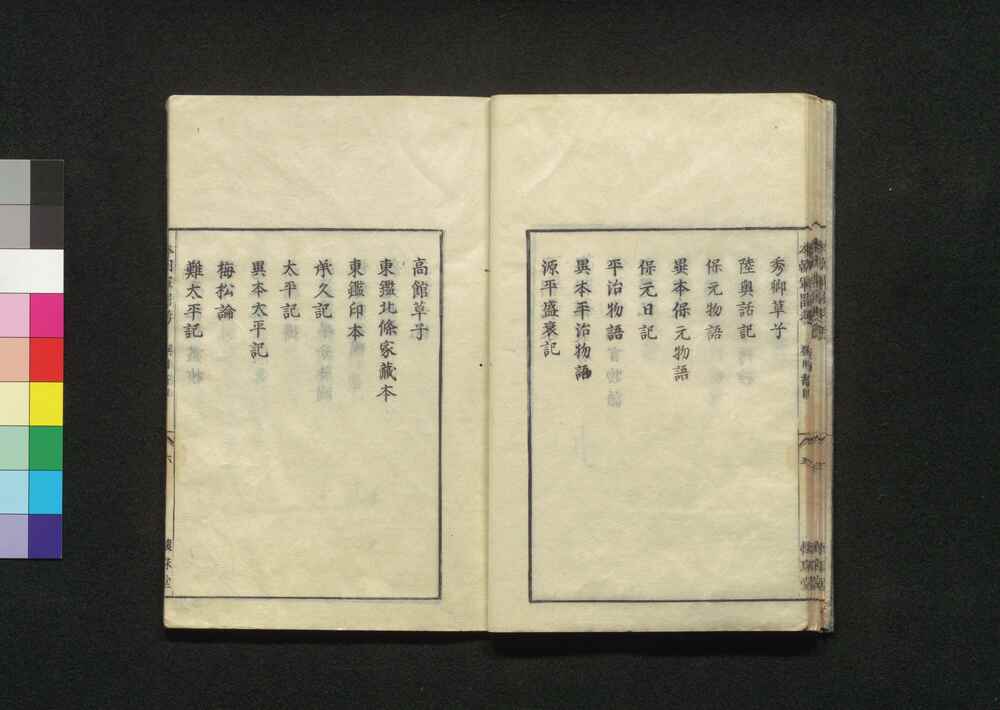 秀郷草子
陸奥話記
保元物語
異本保元物語
保元日記
平治物語
異本平治物語
源平盛衰記
高館草子
東鑑北條家藏本
東鑑印本
承久記
太平記
異本太平記
梅松論
難太平記